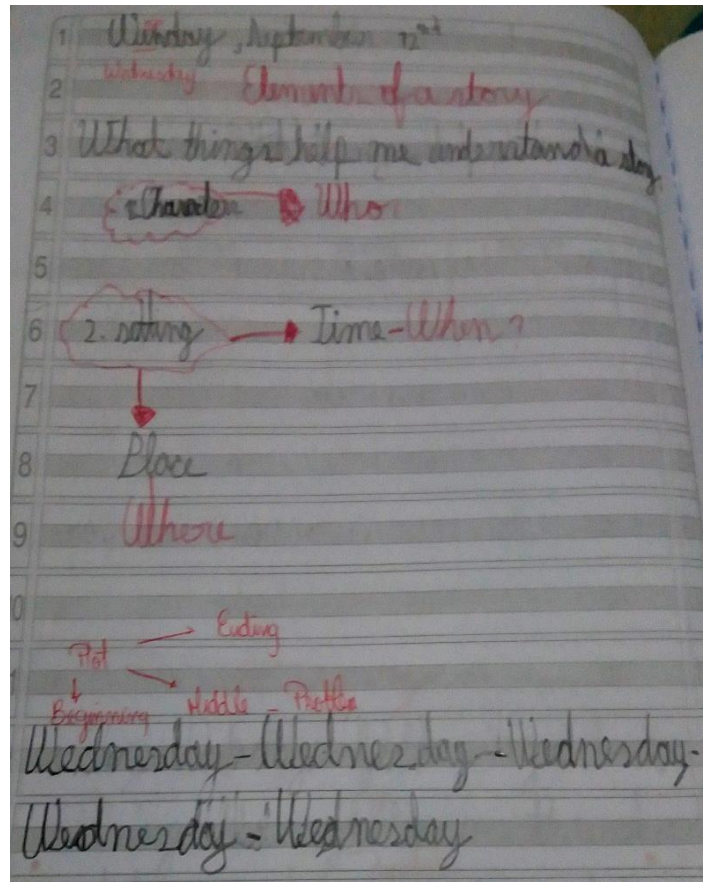 1 Winday, September 12nd
Wednesday
2 Elements of a story
3 What things help me understand a story
4 1. Character Who
5
6 2. setting Time - When?
7
8 Place
9 Where
0
Ending
Plot
Beginning Middle -
Wednesday - Wednezday - Wednesday -
Wednesday - Wednesday